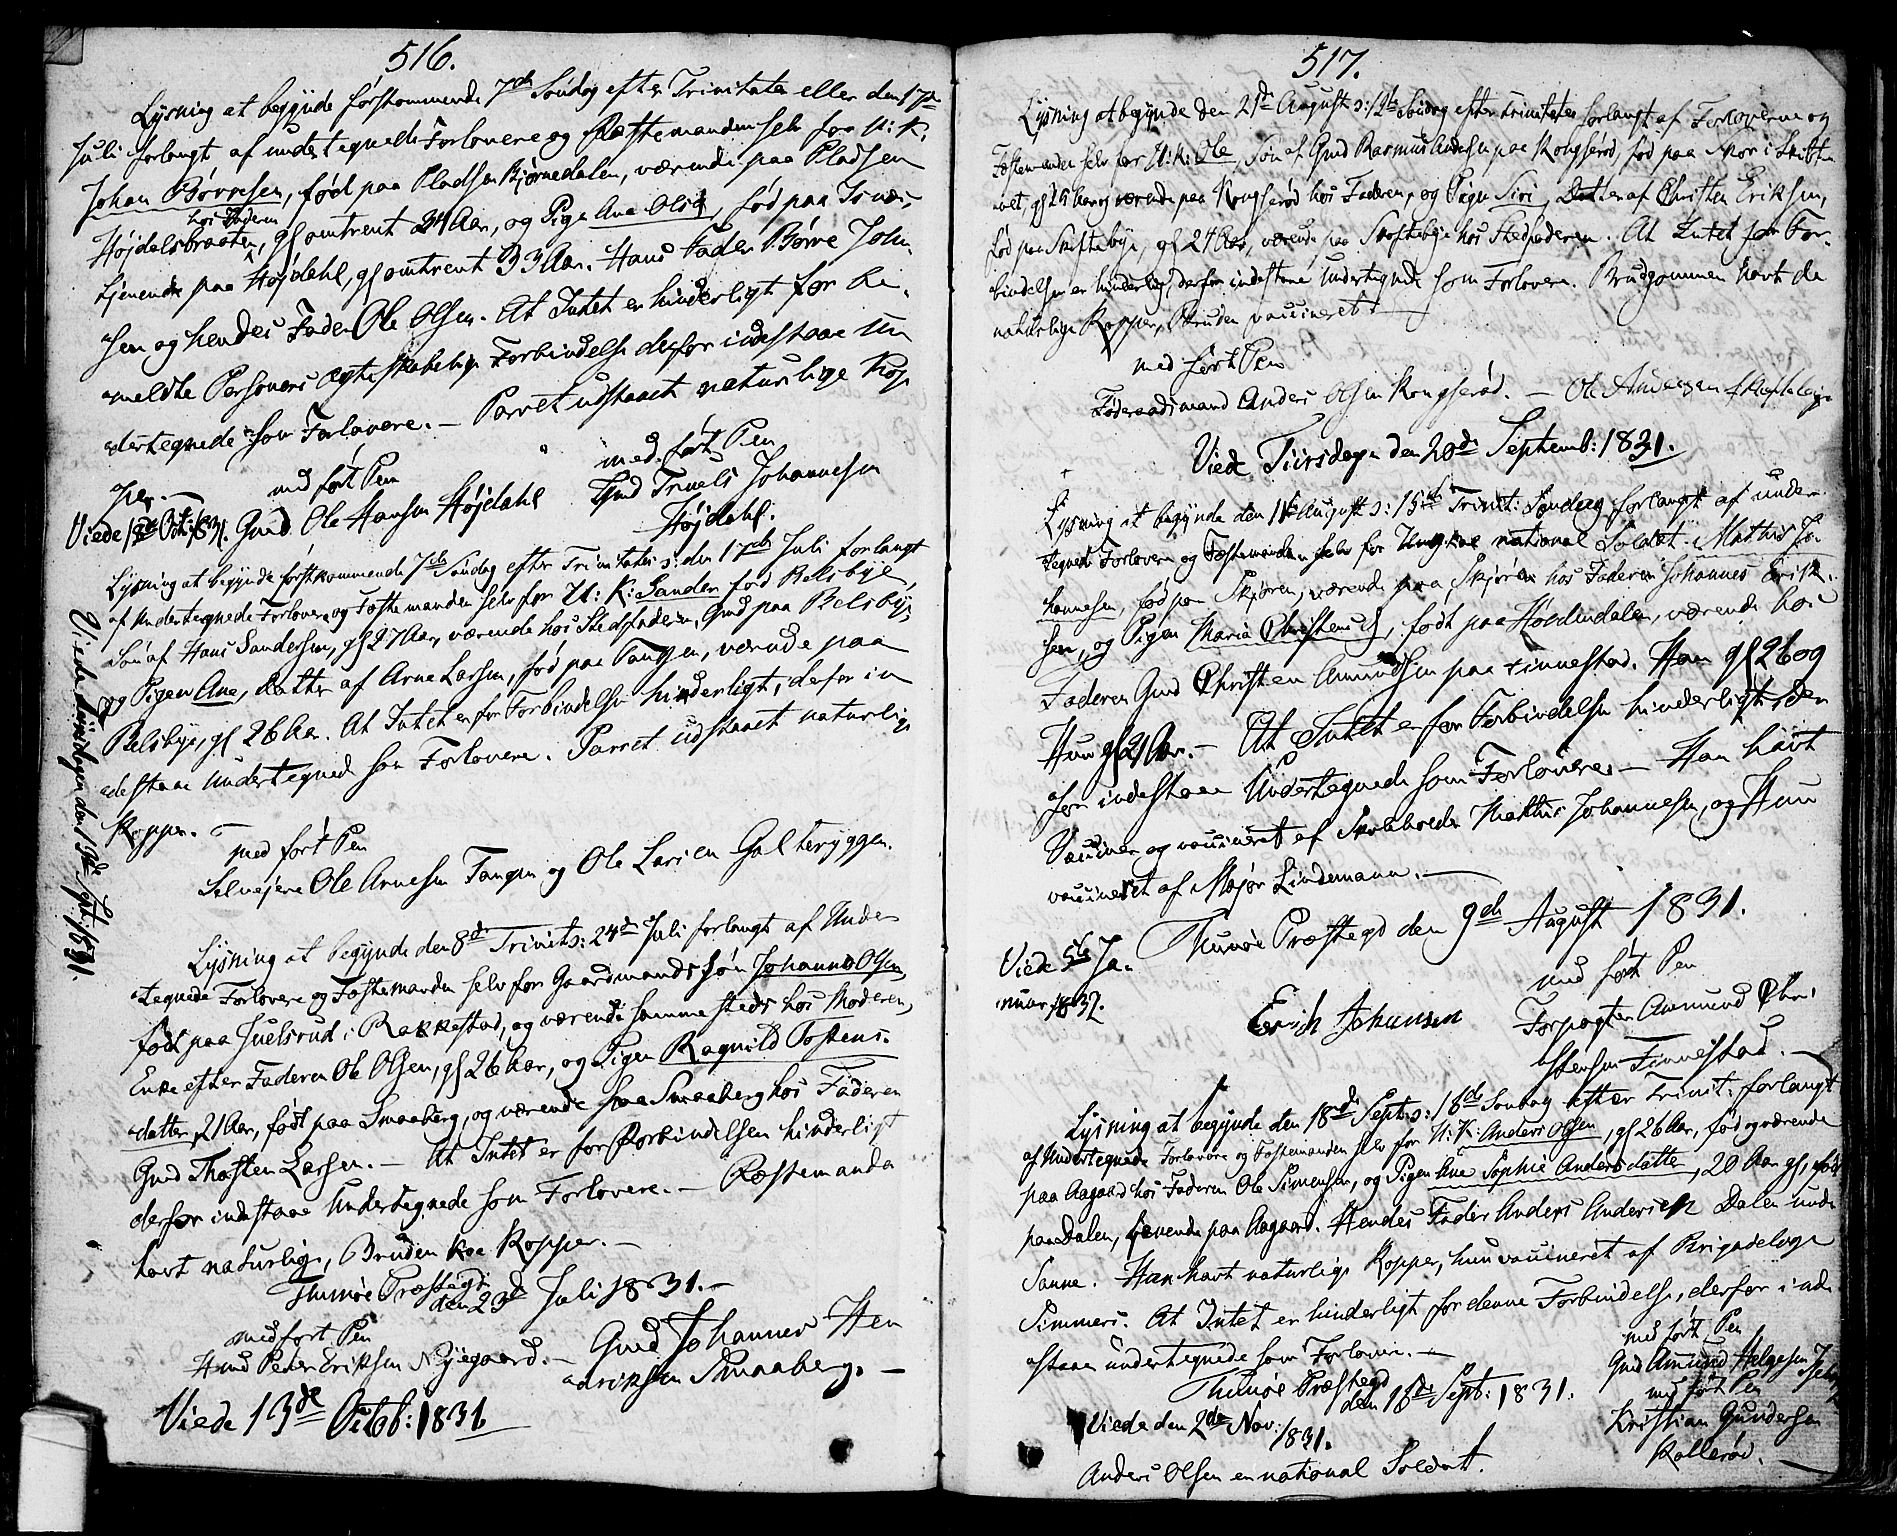 516.
Lysning at begynde førstkommende 7de Søndag efter Trinitatis eller den 17de
Juli forlangt af undertegnede Forlovere og Fæstemanden selv for U: K:
Johan Børresen, født paa Pladsen Bjørnedalen, værende paa Pladsen
hos Faderen
Højdalsbraaten, gl omtrent 24 Aar, og Pige Ane Olsd, fød paa
tjenende paa Højdahl, gl omtrent 33 Aar. Hans Fader Børre John
sen og hendes Fader Ole Olsen. At Intet er hinderligt for be-
meldte Personers ægteskabelige Forbindelse derfor indestaae un
dertegnede som Forlovere. — Parret udstaaet naturlige Kop
per. —
med ført Pen
med ført Pen
Gmd Truels Johannesen
Højdahl.
Viede 18de Oct: 1831. Gmd Ole Hansen Højdahl
Lysning at begynde førstkommende 7de Søndag efter Trinitatis ɔ: den 17de Juli forlangt
af Undertegnede Forlovere og Fæstemanden selv for U: K: Sander fød Relsbye
Søn af Hans Sandersen, gl 27 Aar, værende hos Stedfaderen, Gmd paa Relsbye,
og Pigen Ane, Datter af Arne Larsen, fød paa Tangen, værende paa
Relsbye, gl 26 Aar. At Intet er for Forbindelsen hinderligt, derfor in
destaae Undertegnede som Forlovere. Parret udstaaet naturlige
Kopper. —
med ført Pen
Selvejere Ole Arnesen Tangen og Ole Larsen Galteryggen.
Viede Tirsdagen den 19de Sept: 1831.
Lysning at begynde den 8de Trinit ɔ: 24de Juli forlangt af Under
tegnede Forlovere og Fæstemanden selv for Gaardmands Søn Johannes Olsen,
født paa Juelsrud i Rakkestad, og værende sammesteds hos Moderen,
Enke efter Faderen Ole Olsen, gl 26 Aar, og Pigen Ragnild Tostens-
datter, 21 Aar, født paa Smaaberg, og værende paa Smaaberg hos Faderen
Gmd Thosten Larsen. — At Intet er for Forbindelsen hinderligt
derfor indestaae Undertegnede som Forlovere. — Fæstemanden
havt naturlige, Bruden Koe Kopper. —
Thunøe Præstegd
den 23de Juli 1831. —
med ført Pen
Hmd Peder Eriksen Nyegaard. —
Gmd Johannes Hen
driksen Smaaberg. —
Viede 13de Octb: 1831
517.
Lysning at begynde den 21de August ɔ: 12te Søndag efter Trinitatis forlangt af Forloverne og
Fæstemanden selv for U: K: Ole, Søn af Gmd Rasmus Andersen paa Kongsrød, fød paa Moer i Skibtvedt,
gl 25 Aar og værende paa Kongsrød hos Faderen, og Pigen Siri, Datter af Christen Eriksen,
fød paa Skoftebye, gl 24 Aar, værende paa Skoftebye hos Stedfaderen. At Intet for For-
bindelsen er hinderligt, derfor indestaae Undertegnede som Forlovere. Brudgommen havt de
naturlige Kopper, Bruden vaccineret. —
med ført Pen
Føderaadsmand Anders Olsen Kongsrød. — Ole Andersen Skoftebye
Viede Tirsdagen den 20de Septemb: 1831.
Lysning at begynde den 11te August ɔ: 15de Trinit: Søndag forlangt af under-
tegnede Forlovere og Fæstemanden selv for Ungkar national Soldat Mathis Jo-
hannesen, fød paa Skjøren, værende paa Skjøren hos Faderen Johannes Erik-
sen, og Pigen Maria Christensd, født paa Holdindalen, værende hos
Faderen Gmd Christen Amundsen paa Finnestad. Han gl 26 og
Hun gl 21 Aar. — At Intet er for Forbindelsen hinderligt, der
for indestaae Undertegnede som Forlovere — Han havt
Vacciner og vaccineret af Skoleholder Mathis Johannesen, og Hun
vaccineret af Major Lindemann. —
Thunøe Præstegd den 9de August 1831.
Viede 5te Ja-
nuar 1832.
med ført Pen
Erich Johansen
Forpagter Amund Chri
stensen Finnestad. —
Lysning at begynde den 18de Sept ɔ: 16de Søndag efter Trinit: forlangt
af Undertegnede Forlovere og Fæstemanden selv for U: K: Anders Olsen, gl 26 Aar, fød og værende
paa Aagaard hos Faderen Ole Simensen, og Pigen Ane Sophie Andersdatter, 20 Aar gl, fød
paa Dalen, tjenende paa Aagaard. Hendes Fader Anders Andersen Dalen under
Sanne. Han havt naturlige Kopper, hun vaccineret af Brigadelæge
Simmers. At Intet er hinderligt for denne Forbindelse, derfor inde
staae undertegnede som Forlovere. —
Thunøe Præstegd
den 18de Sept: 1831.
med ført Pen
Gmd Amund Helgesen
med ført Pen
Kristian Gundersen
Kollerød. —
Viede den 2de Nov:
1831.
Anders Olsen er national Soldat.